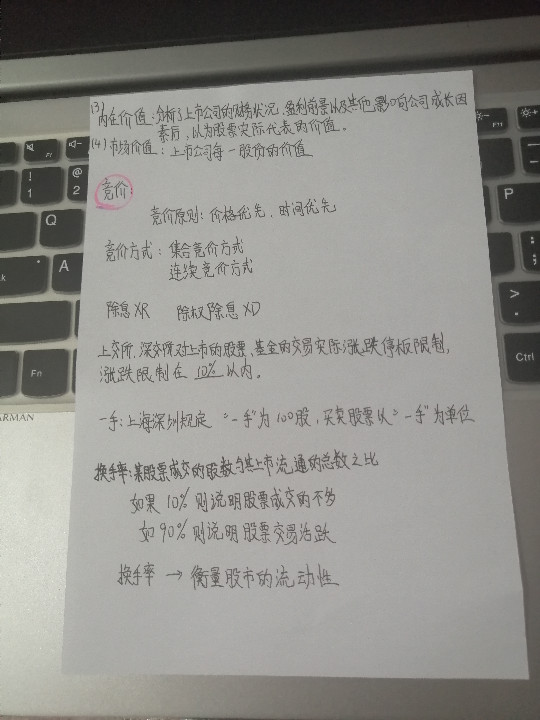 (3) 内在价值：分析了上市公司的财务状况，盈利前景以及其他影响公司成长因
素后，认为股票实际代表的价值。
(4) 市场价值：上市公司每一股份的价值
竞价：
竞价原则：价格优先，时间优先
竞价方式：集合竞价方式
连续竞价方式
除息XR 除权除息XD
上交所，深交所对上市的股票，基金的交易实际涨跌停板限制，
涨跌限制在 10% 以内。
一手：上海深圳规定 "一手"为100股，买卖股票以"一手"为单位
换手率：某股票成交的股数与其上市流通的总数之比
如果10%则说明股票成交的不多
如90%则说明股票交易活跃
换手率 → 衡量股市的流动性
ARMAN
Q
A
P
Fn
Ctrl
!
1
@
2
F11
F1
>
.
:
;